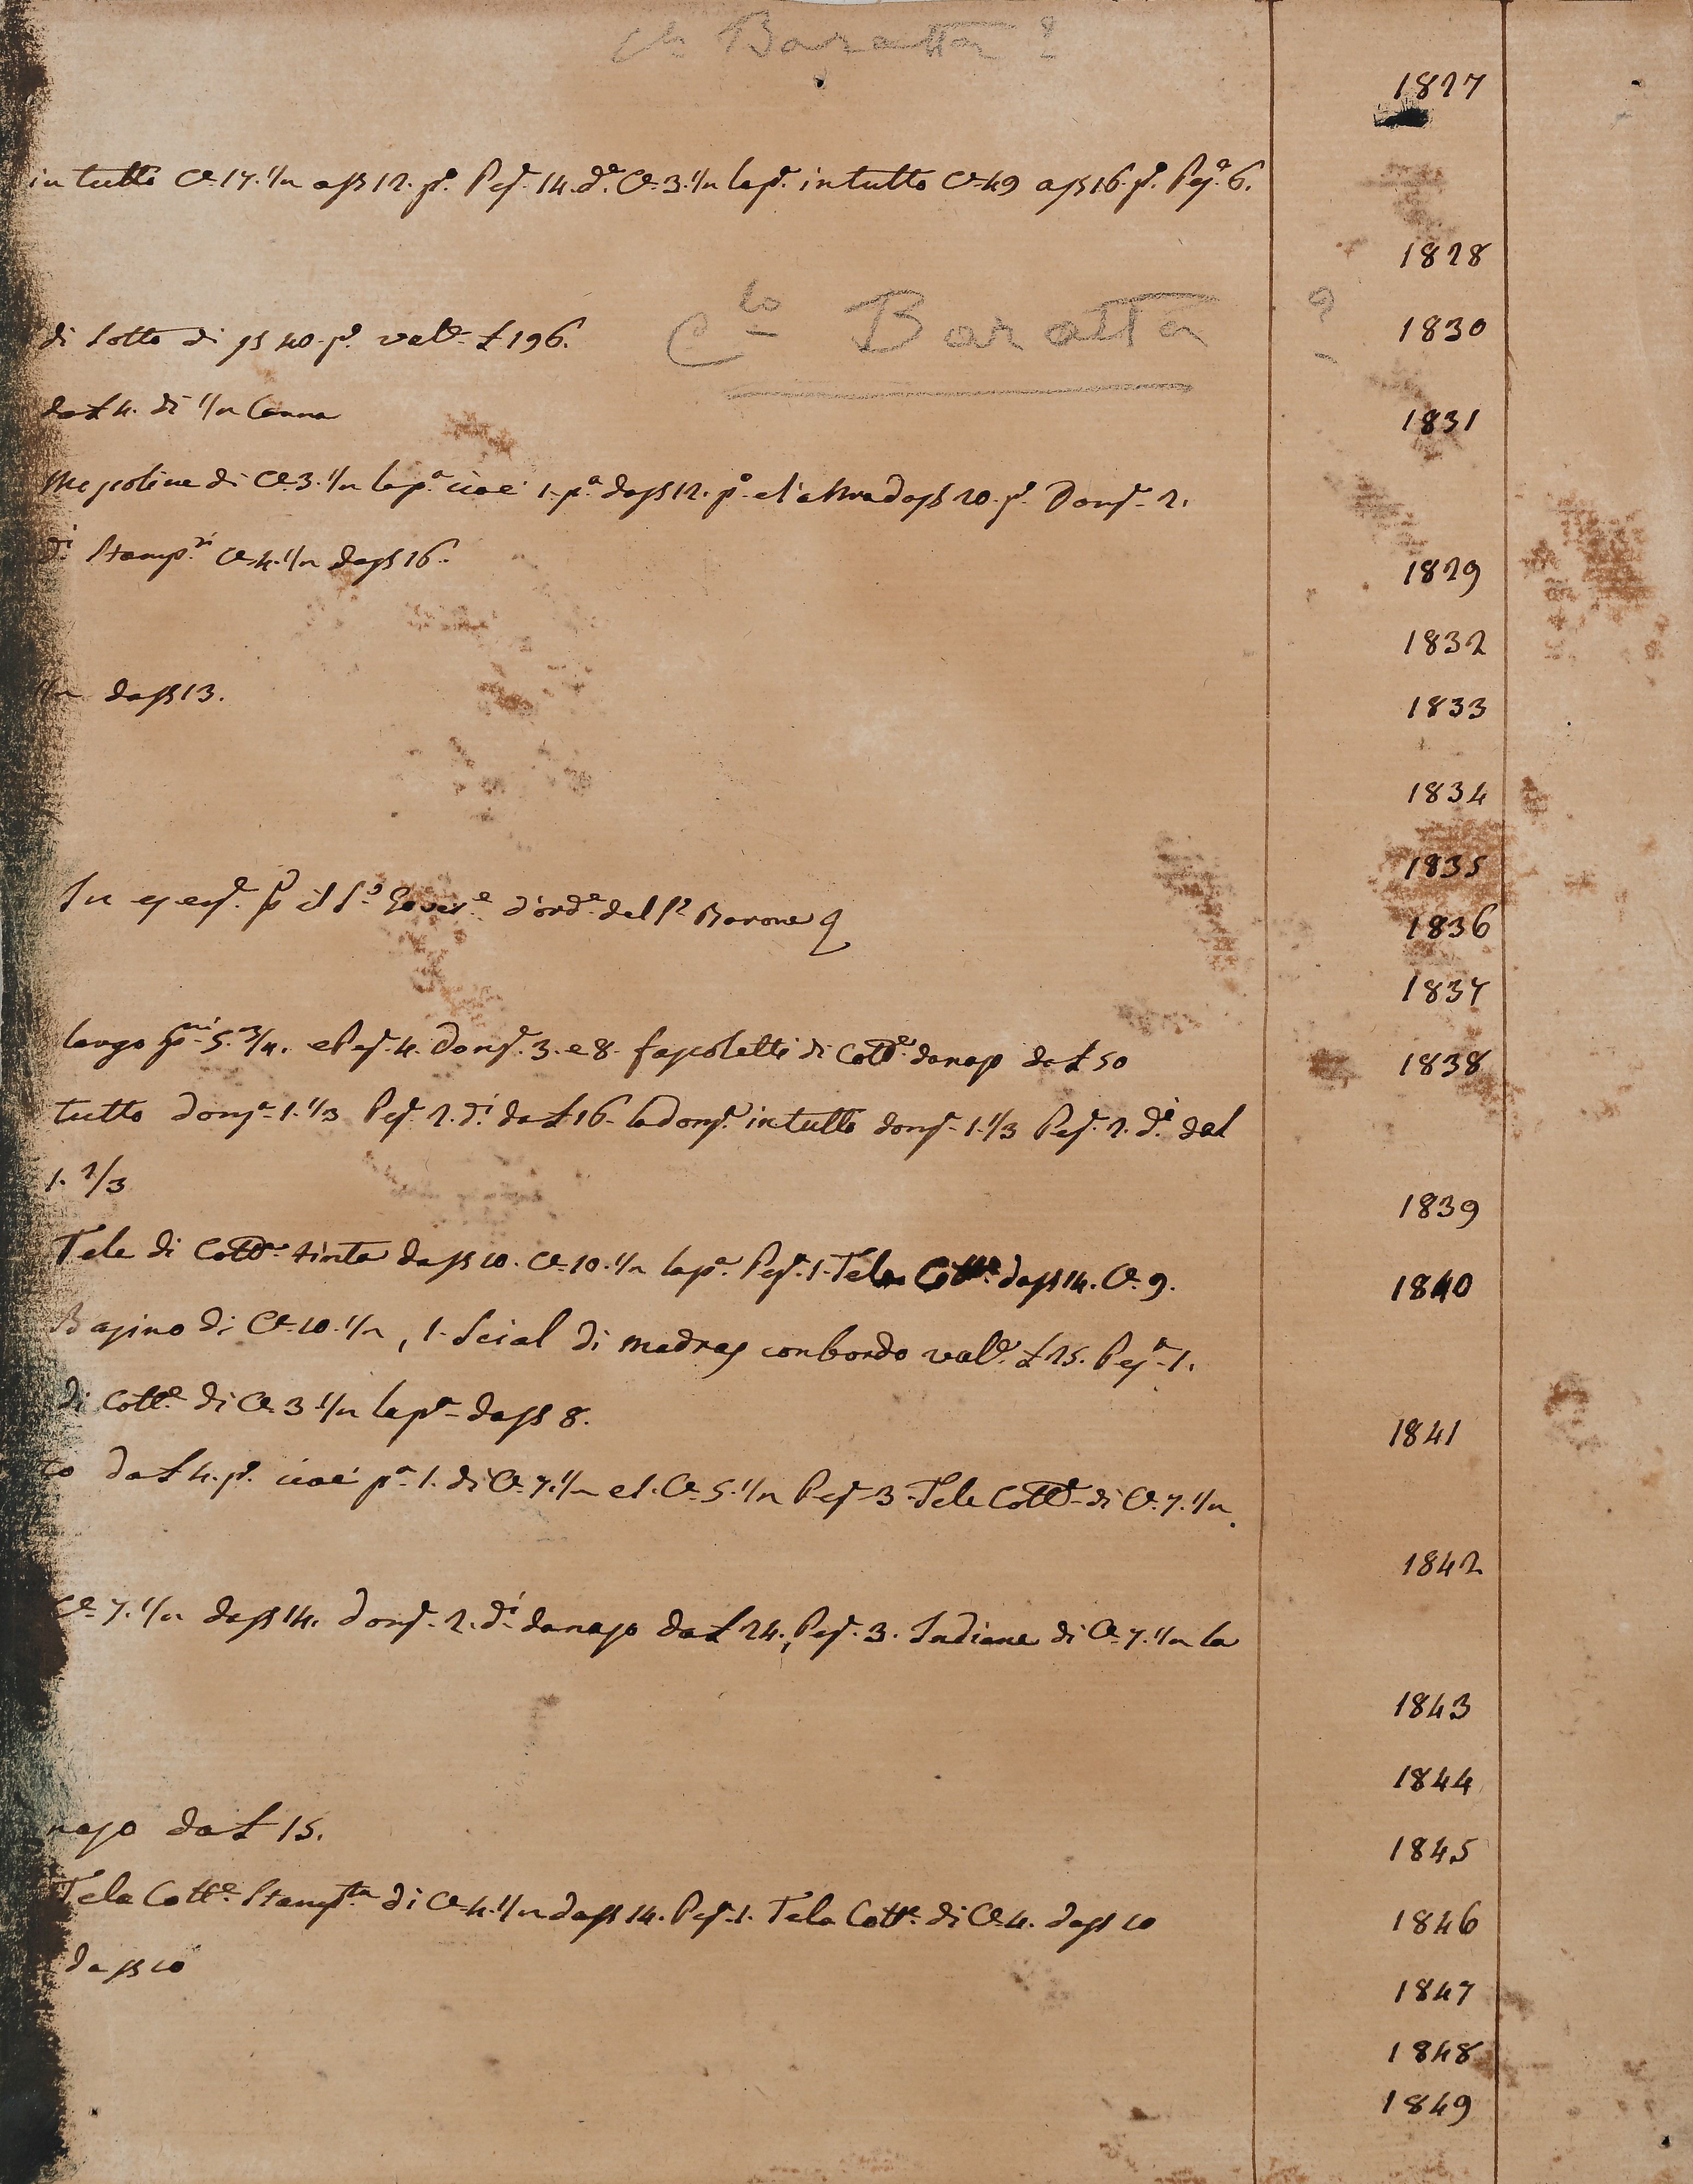 Baratta ?
1827
in tutto Ce. 17. 1/2 a ß 12. p.º Pez.e 14. d.e Ce. 3. 1/2 la p.a in tutto Ce. 49 a ß 16 p.º Pez.e 6.
1828
C.lo Baratta ?
di sotto di ß 40. p.º val.e £ 196.
1830
da £ 4. di 1/2 Canna
1831
di Ce. 3. 1/2 la p.a cioè 1. p.a da ß 12. p.º e l'altra da ß 20. p.º Donz.e 2.
di Stamp.ti Ce. 4. 1/2 da ß 16.
1829
1832
1/2 da ß 13.
1833
1834
1835
il S.r d'ord.e del S.r Barone
1836
1837
largo p.mi 5. 3/4. e Pez.e 4. Donz.e 3. e 8. fazoletti di Cott.e da naso da £ 50
1838
tutto donz.e 1. 1/3 Pez.e 2. d.i da £ 16. la donz.a in tutto donz.e 1. 1/3 Pez.e 2. d.i da £
1. 2/3
1839
Tele di Cott.e tinte da ß 10. Ce. 10. 1/2 la p.a Pez.e 1. Tela Cott.e da ß 14. Ce. 9.
1840
Basino di Ce. 10. 1/2, 1. Scial di madras con bordo val.e £ 25. Pez.a 1.
di Cott.e di Ce. 3 1/2 la p.a da ß 8.
1841
to da £ 4. p.º cioè p.a 1. di Ce. 7. 1/2 e 1. Ce. 5. 1/2 Pez.e 3. Tele Cott.e di Ce. 7. 1/2.
1842
Ce. 7. 1/2 da ß 14. Donz.e 2. d.i da naso da £ 24, Pez.e 3. Indiane di Ce. 7. 1/2 la
1843
1844
naso da £ 15.
1845
Tela Cott.e Stamp.ta di Ce. 4. 1/2 da ß 14. Pez.e 1. Tela Cott.e di Ce. 4. da ß 10
1846
da ß 10
1847
1848
1849